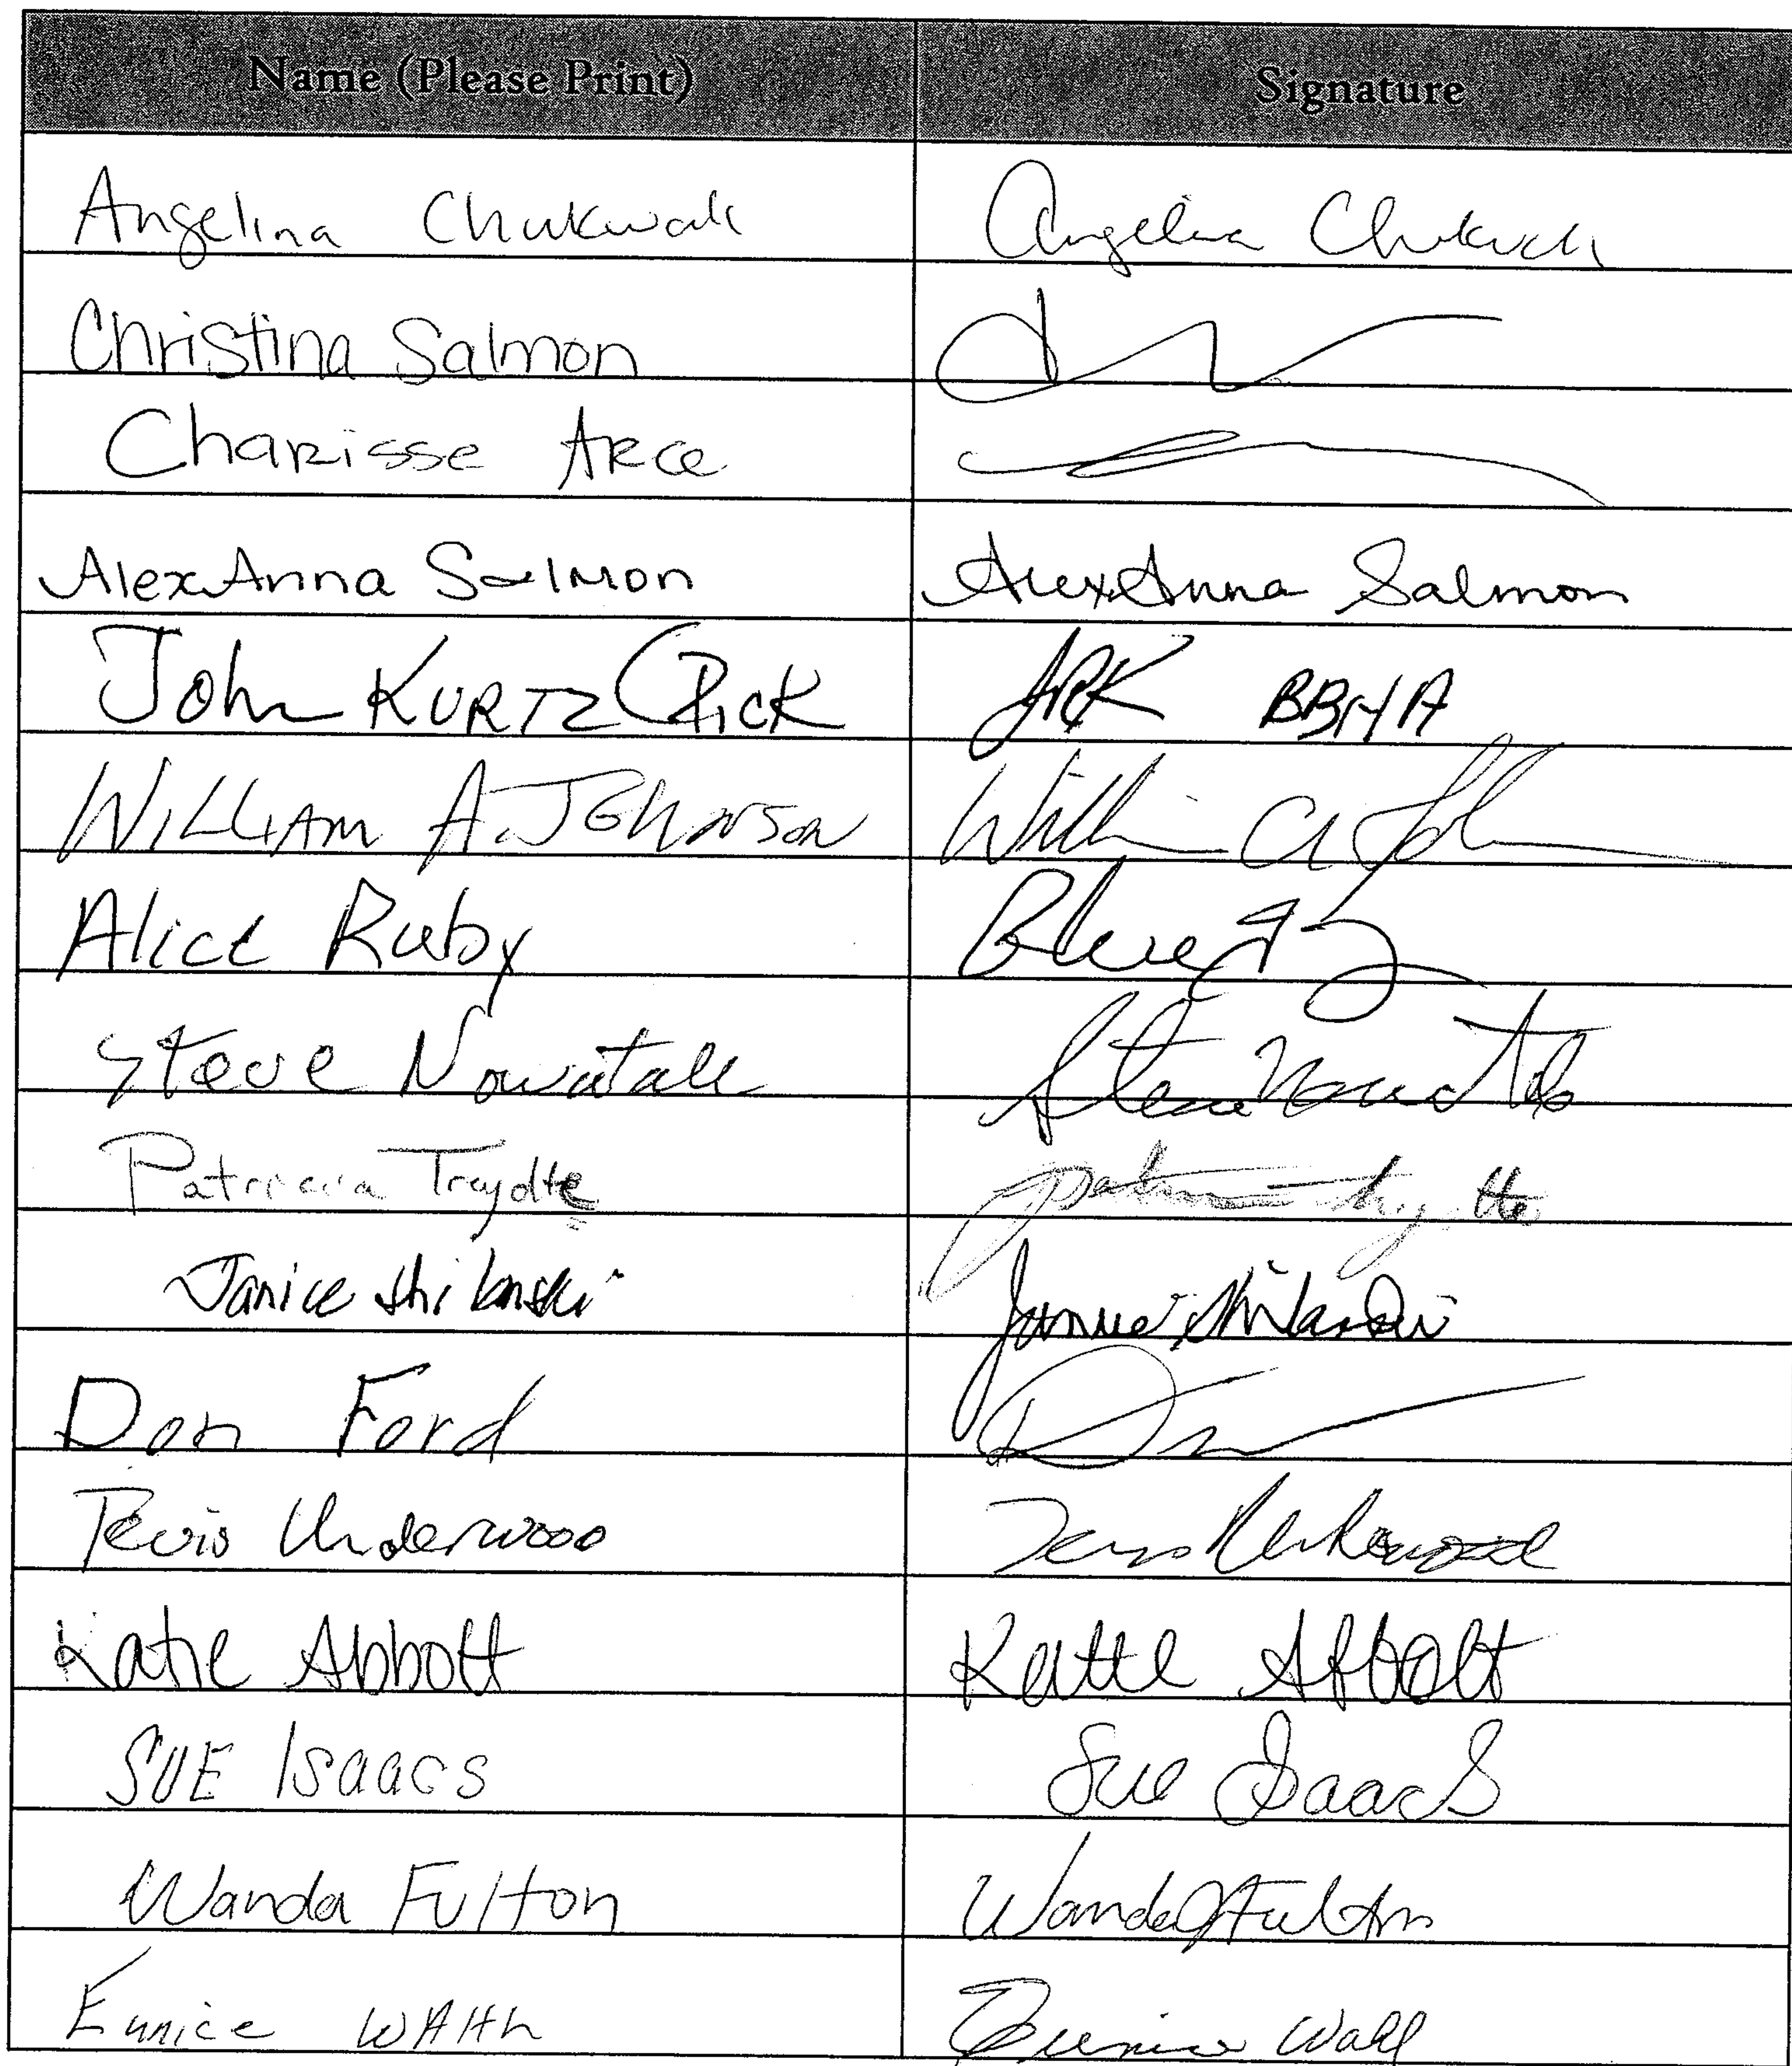 Name (Please Print) Signature
Angelina Chukwak Angelina Chukwak
Christina Salmon
Charisse Arce
AlexAnna Salmon AlexAnna Salmon
John Kurtz (Rick JRK BBHA
William A. Johnson William A Joh
Alice Ruby
Steve Nowatak Steve
Patricia Treydte
Janice Shilanski Janice Shilanski
Don Ford
Tevis Underwood Tevis Underwood
Katie Abbott Katie Abbott
SUE Isaacs Sue Isaacs
Wanda Fulton Wanda Fulton
Eunice Eunice Wall